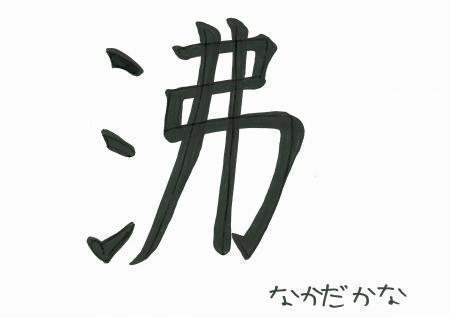 沸
なかだかな